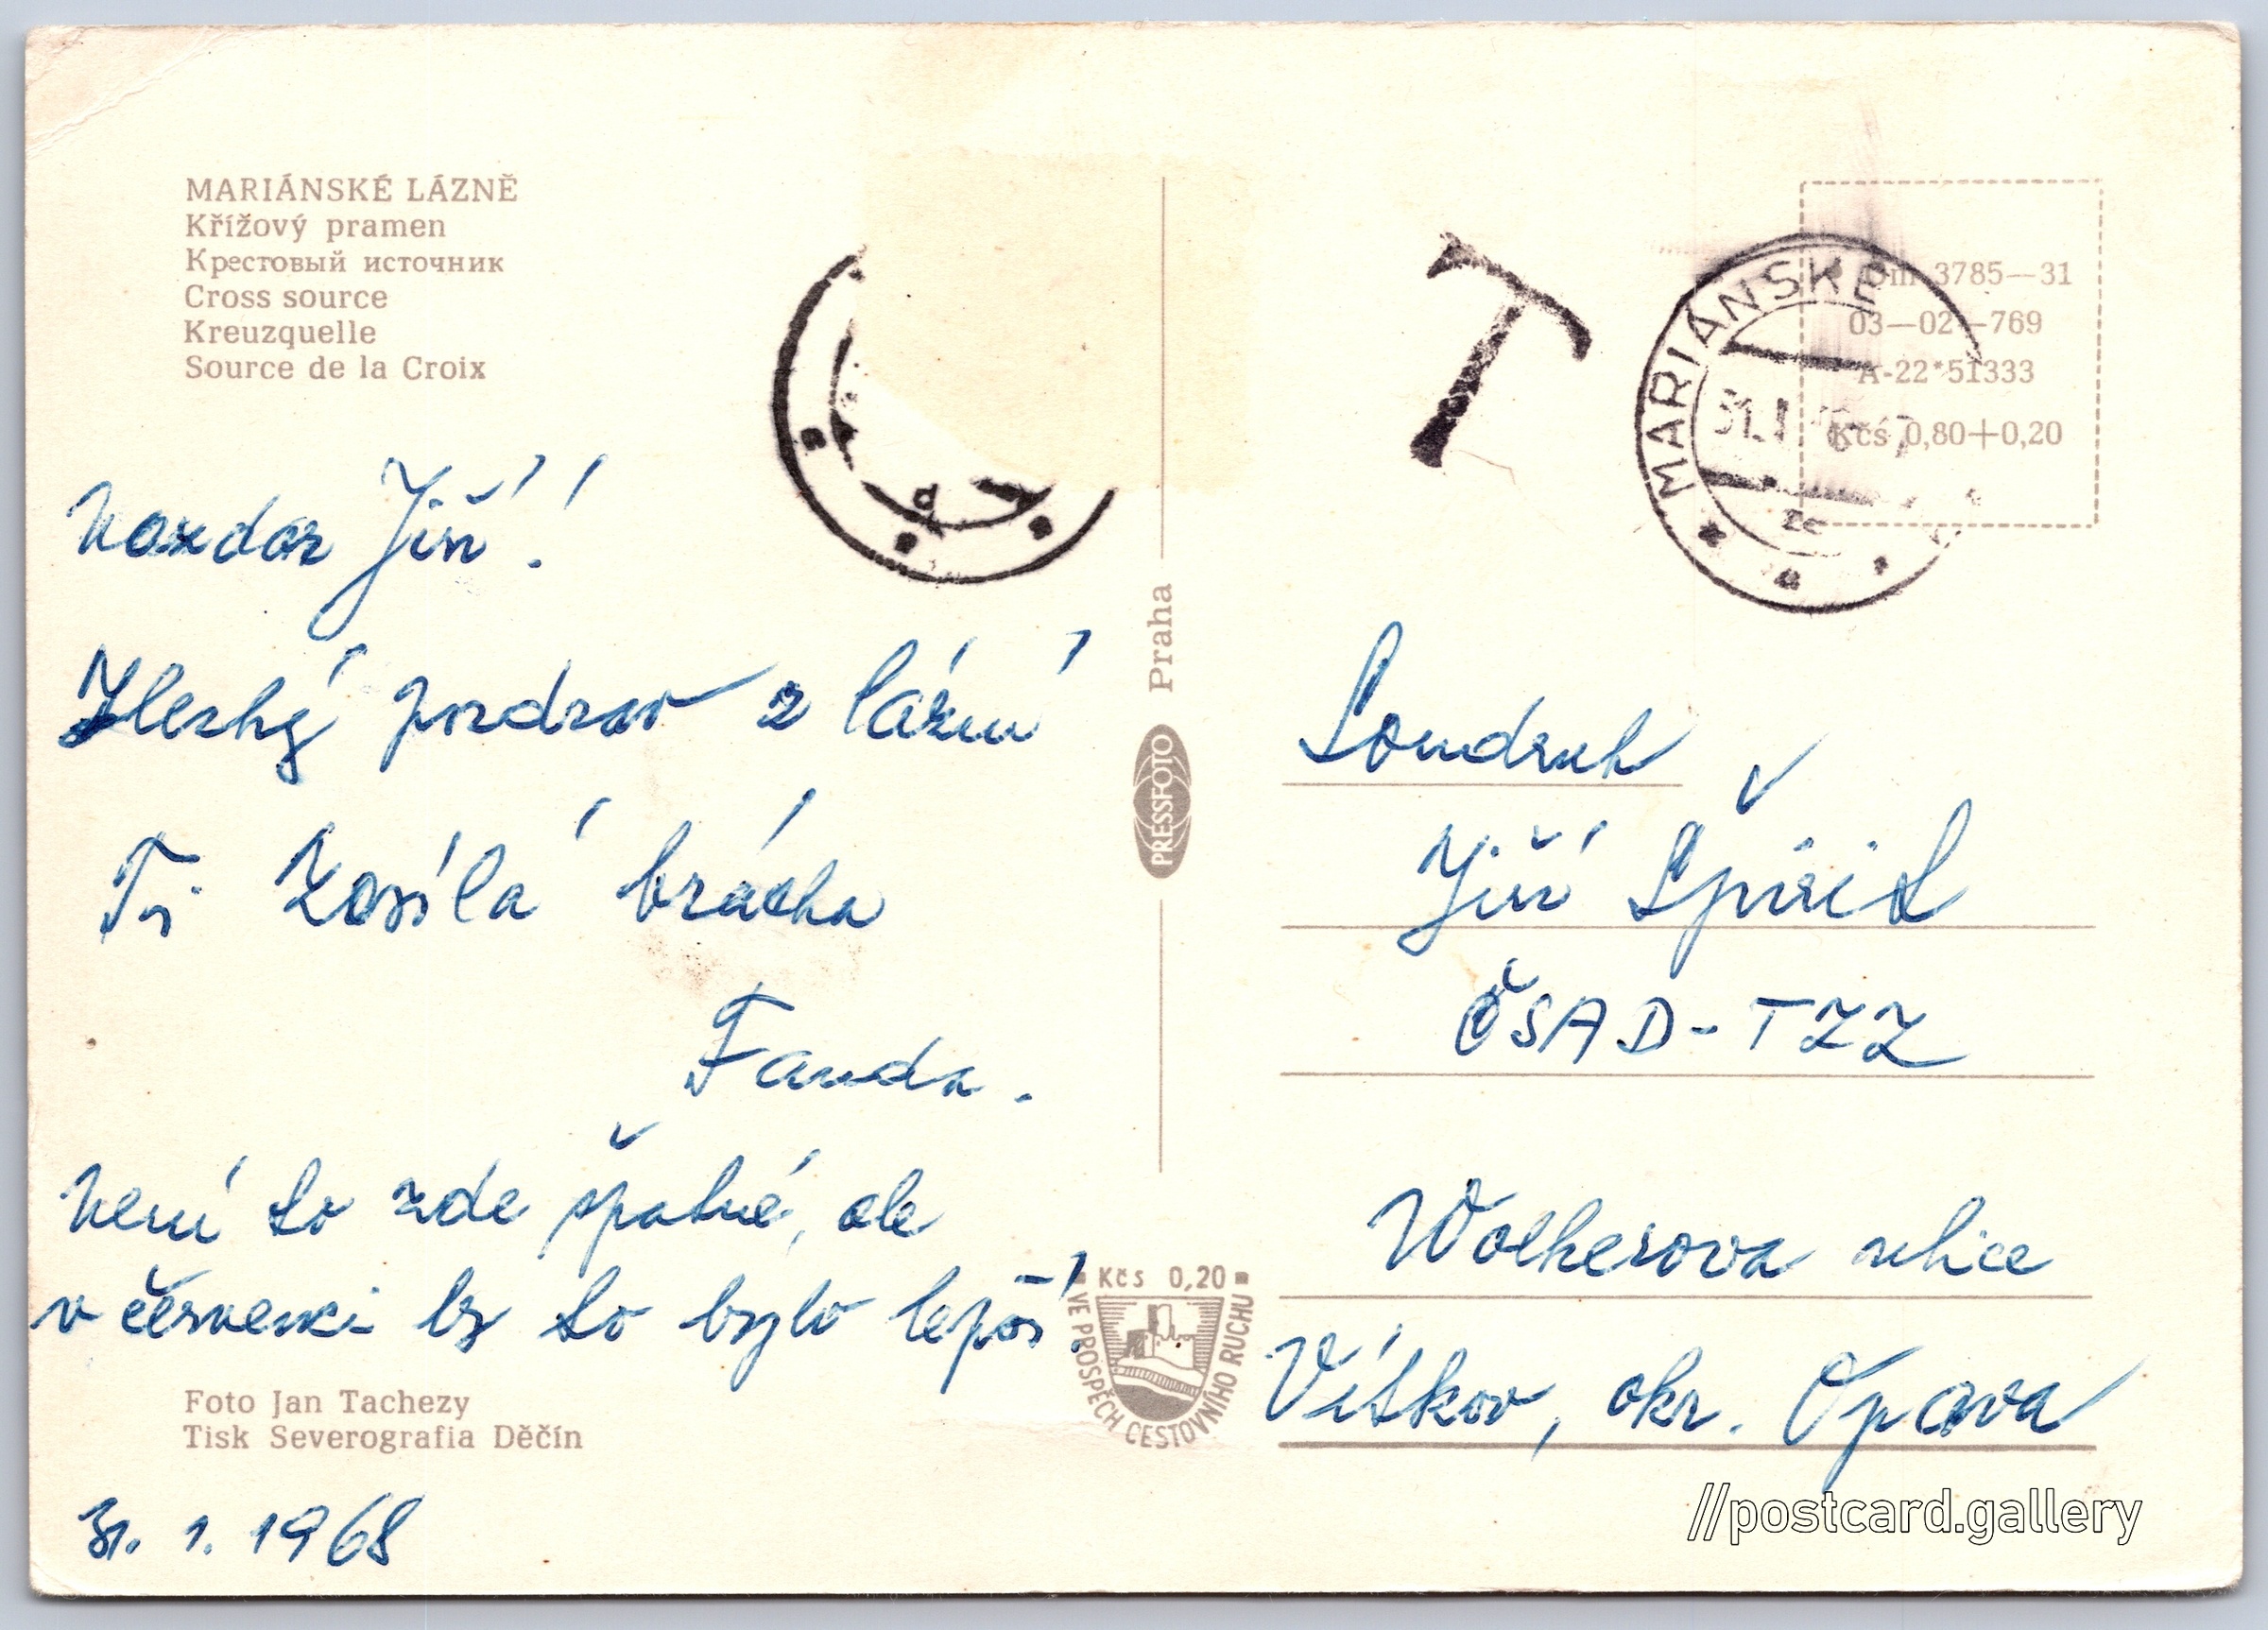 MARIÁNSKÉ LÁZNĚ
Křížový pramen
Крестовый источник
Cross source
Kreuzquelle
Source de la Croix
Nazdar Jiří!
Hezký pozdrav z lázní
Ti zasílá brácha
Fanda.
Není to zde špatné, ale
v červenci by to bylo lepší!
Foto Jan Tachezy
Tisk Severografia Děčín
31. 1. 1968
Praha
PRESSFOTO
Kčs 0,20
VE PROSPĚCH CESTOVNÍHO RUCHU
T
MARIÁNSKÉ
31.1
3785—31
03—02—769
A-22*51333
Kčs 0,80+0,20
Soudruh
Jiří
ČSAD-TZZ
Wolkerova ulice
Vítkov, okr. Opava
//postcard.gallery